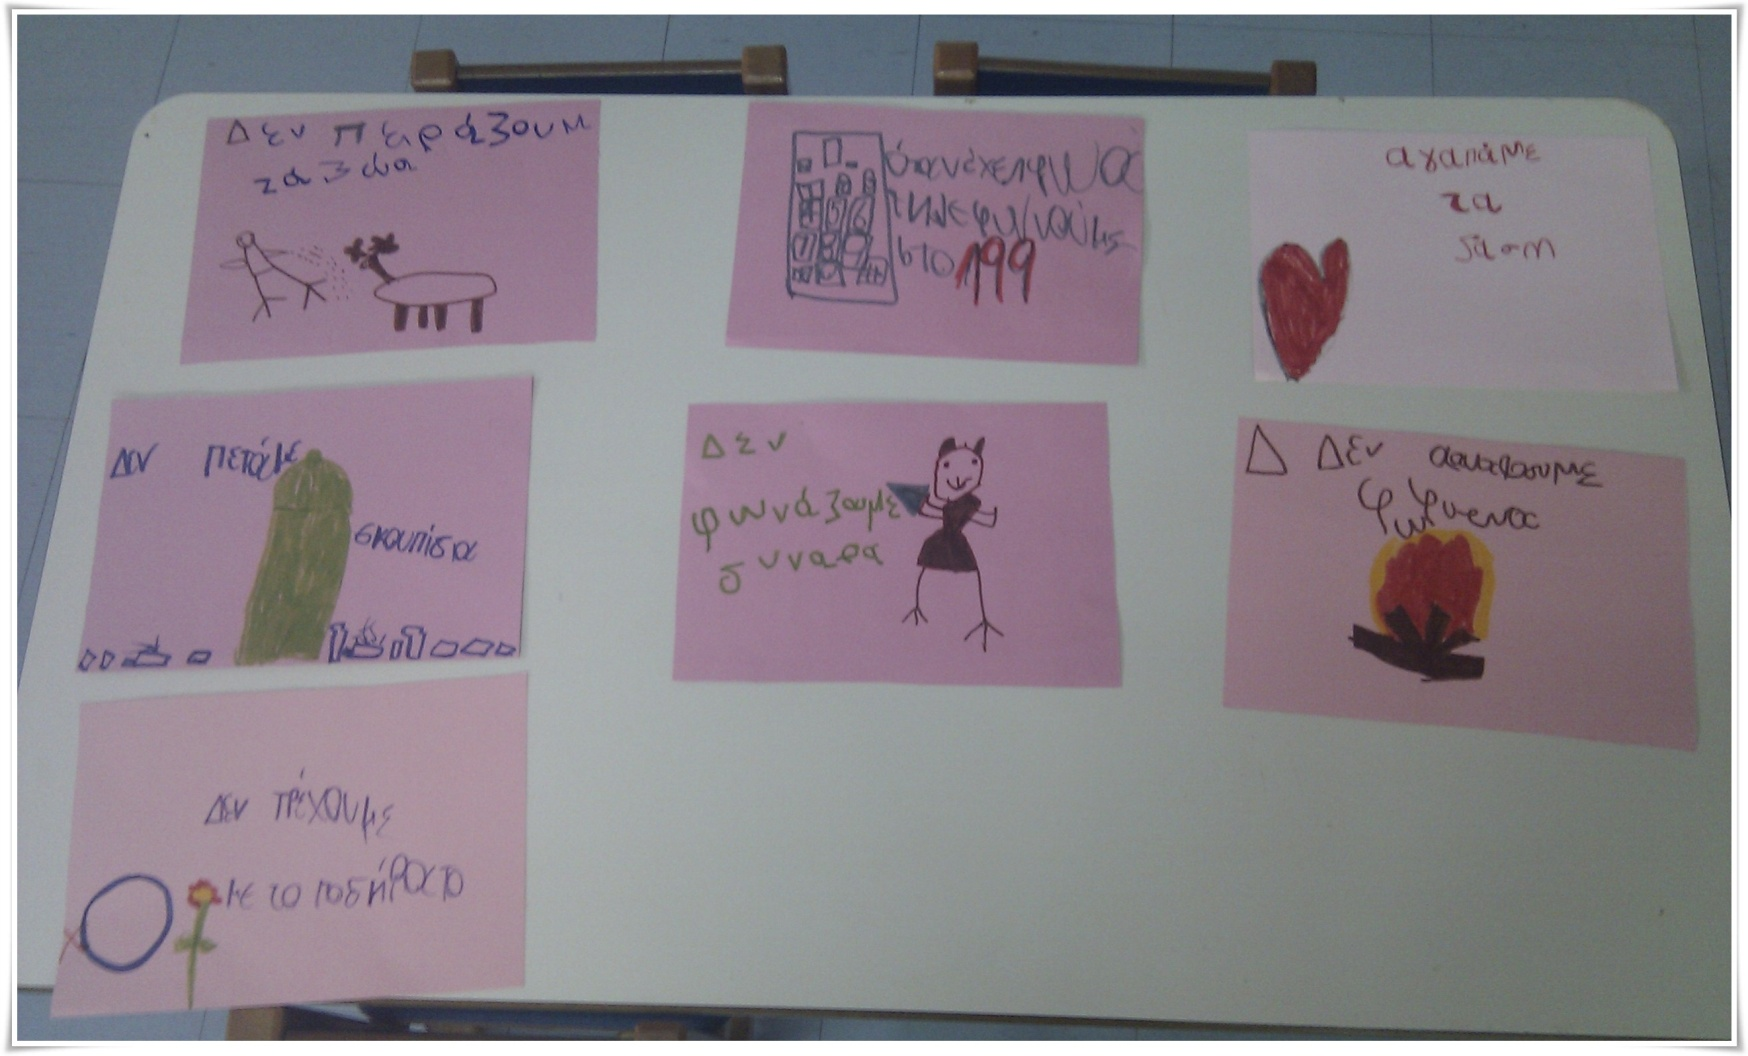 Δεν πειράζουμ
τα ζώα
όταν έχει φωτιά
τηλεφωνούμε
στο 199
αγαπάμε
τα
δάση
Δεν πετάμε
σκουπίδια
Δεν
φωνάζουμε
δυναρα
Δ Δεν αναφουμε
φω
Δεν τρέχουμε
με το ποδήρατο